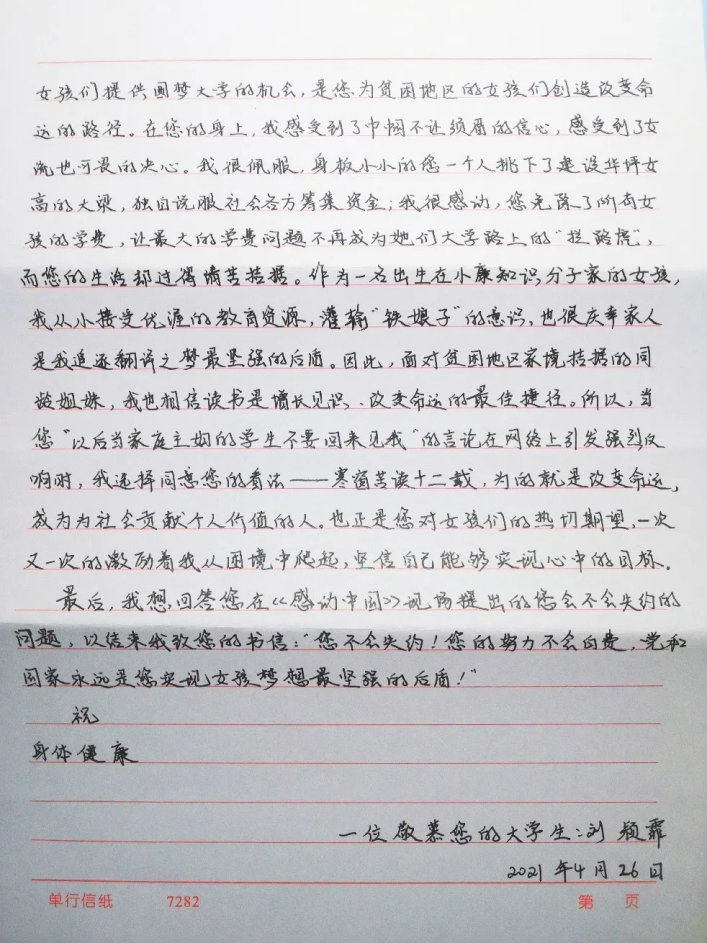 女孩们提供圆梦大学的机会，是您为贫困地区的女孩们创造改变命
运的路径。在您的身上，我感受到了巾帼不让须眉的信心，感受到了女
流也可畏的决心。我很佩服，身板小小的您一个人挑下了建设华坪女
高的大梁，独自说服社会各方筹集资金；我很感动，您免除了所有女
孩的学费，让最大的学费问题不再成为她们大学路上的“拦路虎”，
而您的生活却过得清苦拮据。作为一名出生在小康知识分子家的女孩，
我从小接受优渥的教育资源，灌输“铁娘子”的意识，也很庆幸家人
是我追逐翻译之梦最坚强的后盾。因此，面对贫困地区家境拮据的同
龄姐妹，我也相信读书是增长见识、改变命运的最佳捷径。所以，当
您“以后当家庭主妇的学生不要回来见我”的言论在网络上引发强烈反
响时，我选择同意您的看法——寒窗苦读十二载，为的就是改变命运，
成为为社会贡献个人价值的人。也正是您对女孩们的热切期望，一次
又一次的激励着我从困境中爬起，坚信自己能够实现心中的目标。
最后，我想回答您在《感动中国》现场提出的您会不会失约的
问题，以结束我致您的书信：“您不会失约！您的努力不会白费，党和
国家永远是您实现女孩梦想最坚强的后盾！”
祝
身体健康
一位敬慕您的大学生：刘颖霏
2021年4月26日
单行信纸 7282 第 页